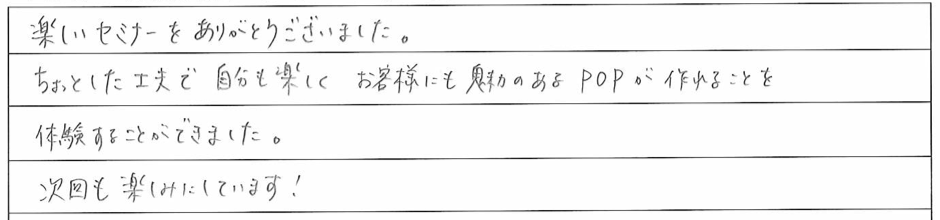 楽しいセミナーをありがとうございました。
ちょっとした工夫で 自分も楽しく お客様にも魅力のあるPOPが作れることを
体験することができました。
次回も楽しみにしています！